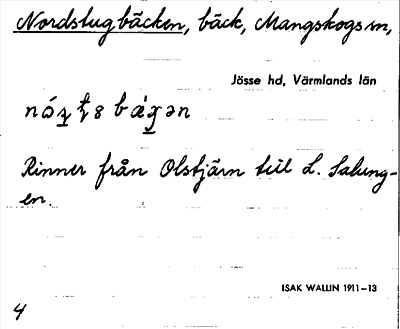 Nordstugbäcken, bäck, Mangskogs sn,
Jösse hd, Värmlands län
Rinner från Olstjärn till L. Salung-
en.
ISAK WALLIN 1911–13
4